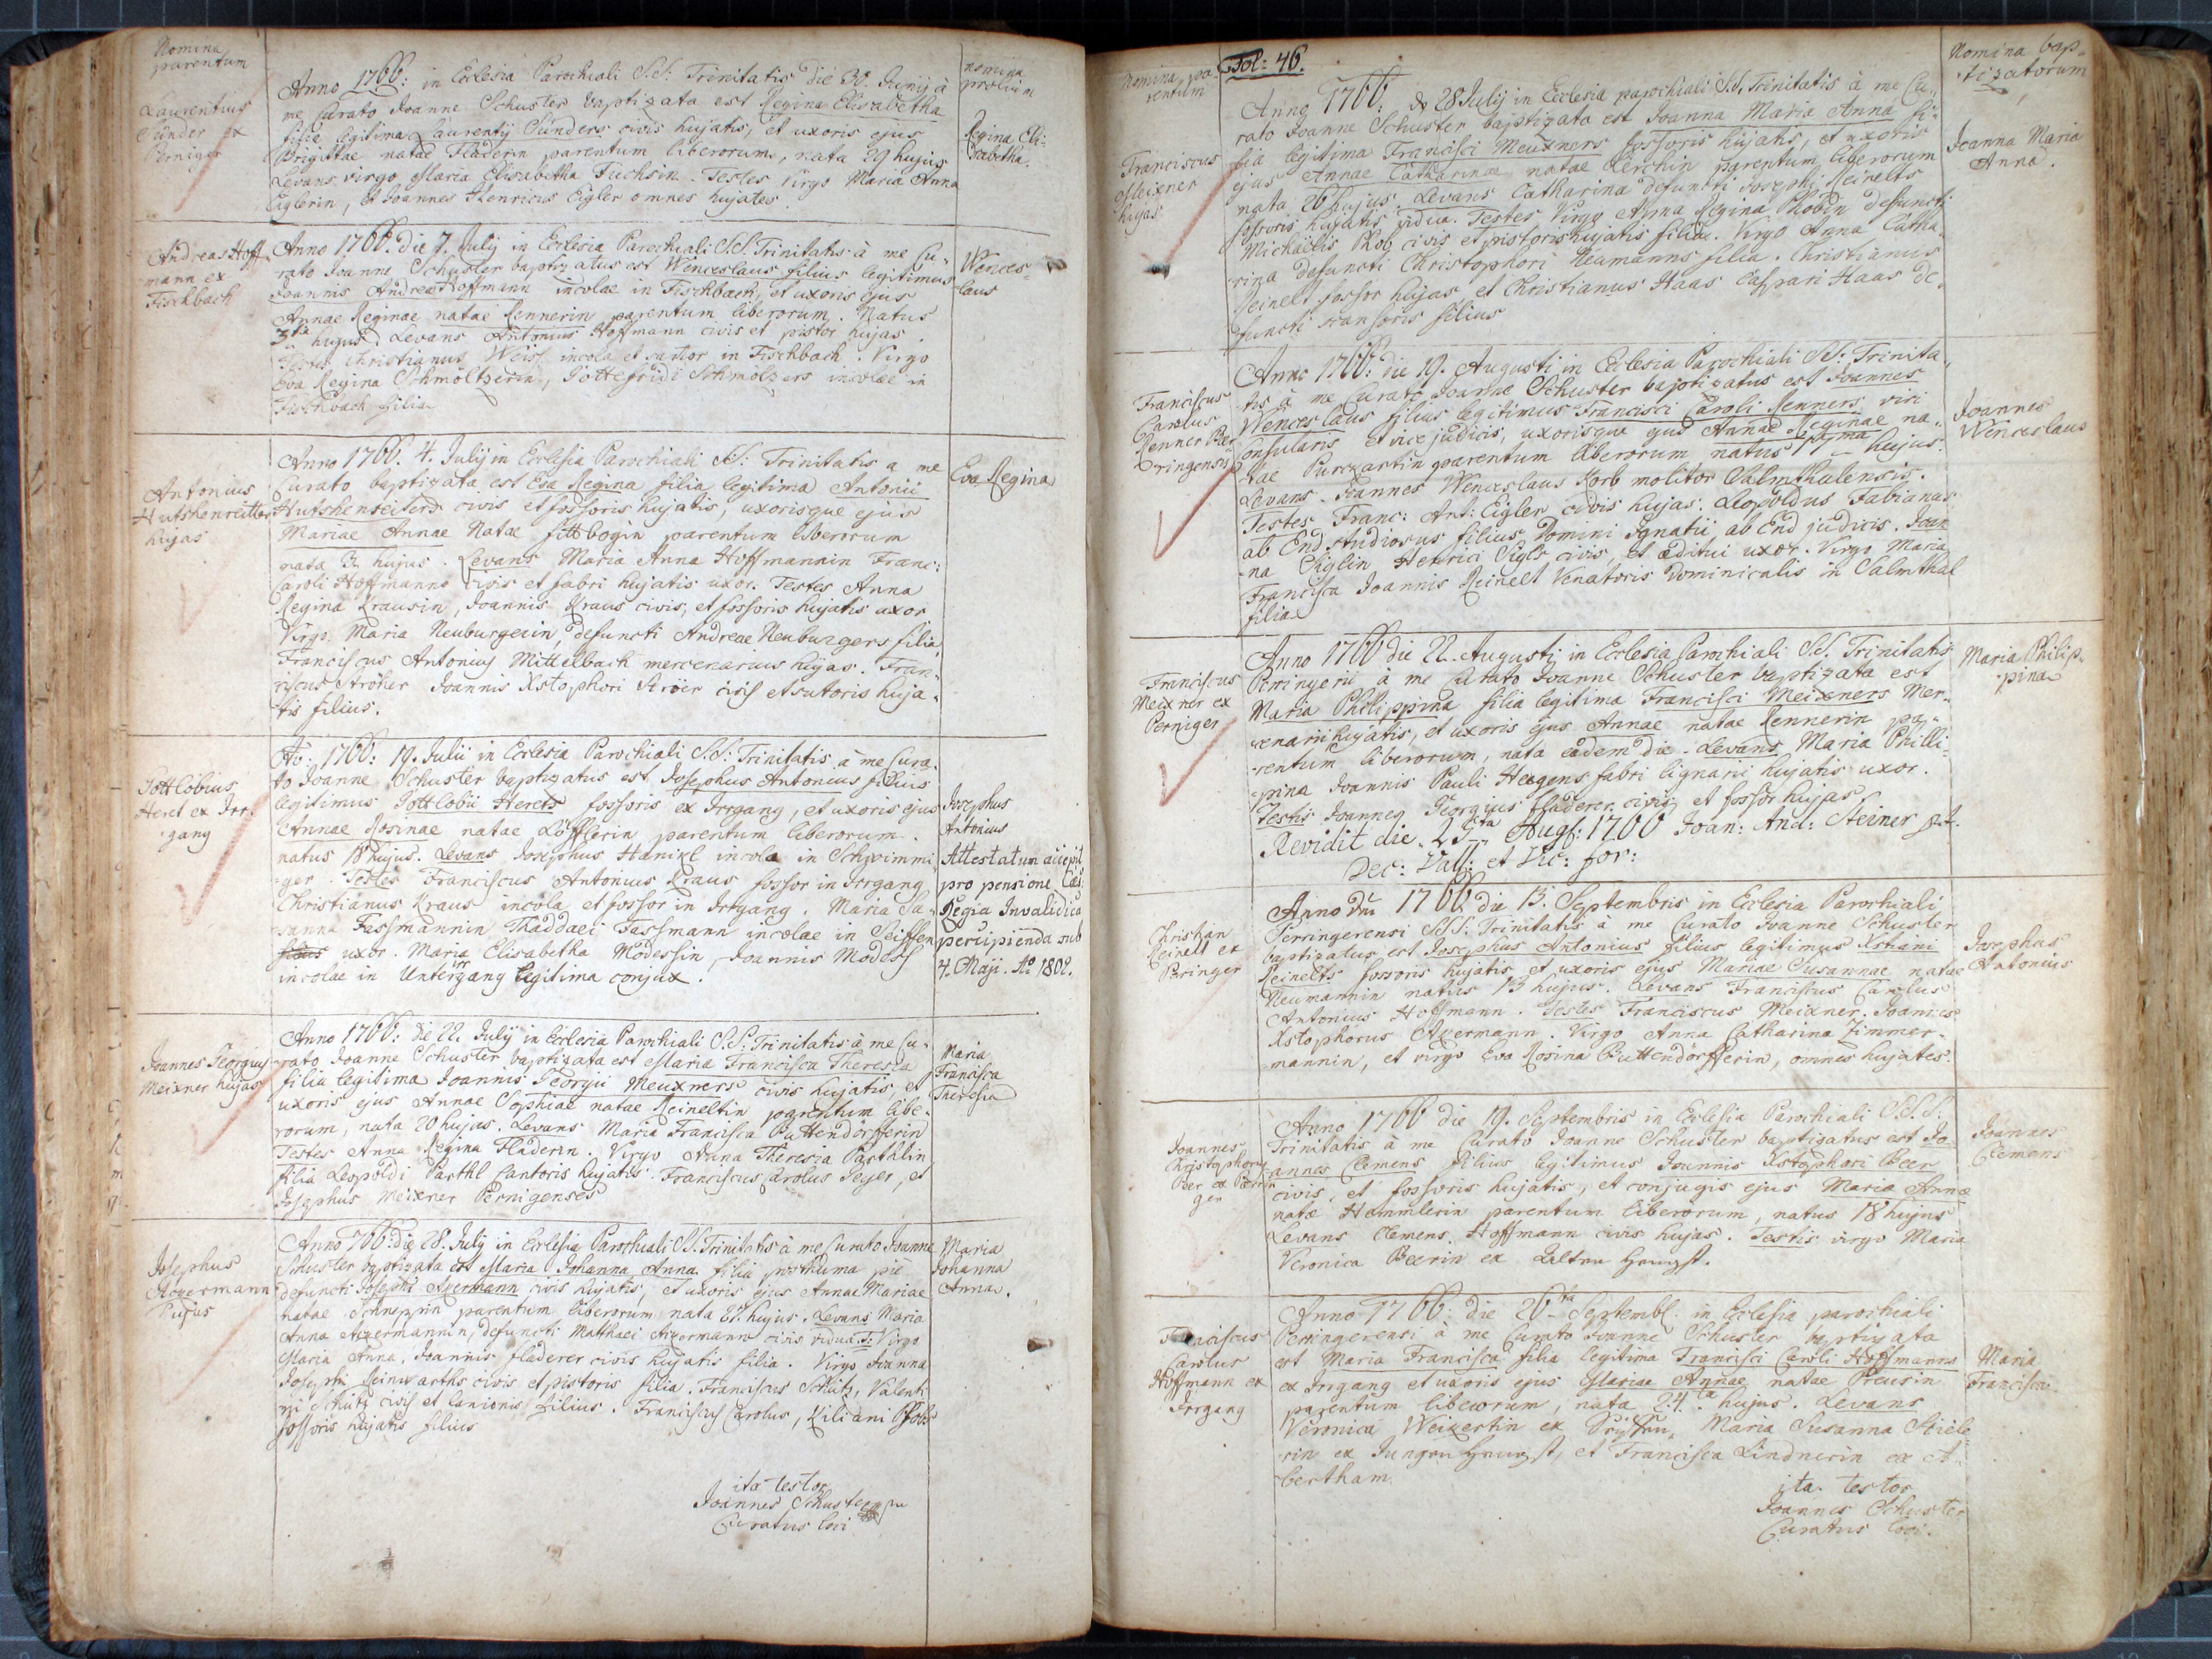 Nomina
parentum
nomina
prolium
Laurentius
Günder ex
Perniger
Anno 1766: in Ecclesia Parochiali S.S: Trinitatis die 30. Junij à
me Curato Joanne Schuster baptizata est Regina Elisabetha
filia legitima Laurentij Günders civis hujatis, et uxoris ejus
Brigittae natae Fladerin parentum liberorum, nata 29 hujus
Levans virgo Maria Elisabetha Fuchsin. Testes Virgo Maria Anna
Eiglerin, et Joannes Henricus Eigler omnes hujates
Regina Eli-
sabetha.
Andreas Hoff
mann ex
Fischbach
Anno 1766. die 7. Julij in Ecclesia Parochiali S.S. Trinitatis à me Cu-
rato Joanne Schuster baptizatus est Wenceslaus filius legitimus
Joannis Andreae Hoffmann incolae in Fischbach, et uxoris ejus
Annae Reginae natae Rennerin parentum liberorum. Natus
3tia hujus Levans Antonius Hoffmann civis et pistor hujas.
Testes Christianus Weiss incola et sartor in Fischbach. Virgo
Eva Regina Schmöltzerin, Gottefridi Schmölzers incolae in
Fischbach filia
Wences-
laus
Antonius
Hutshenreitter
hujas
Anno 1766. 4. Julij in Ecclesia Parochiali S.S: Trinitatis a me
Curato baptizata est Eva Regina filia legitima Antonii
Hutshenreiters civis et fossoris hujatis, uxorisque ejus
Mariae Annae Natae fittbogin parentum liberorum
nata 3 hujus. Levans Maria Anna Hoffmannin Franc:
Caroli Hoffmanns civis et fabri hujatis uxor. Testes Anna
Regina Krausin, Joannis Kraus civis, et fossoris hujatis uxor
Virgo Maria Neuburgerin, defuncti Andreae Neuburgers filia,
Franciscus Antonius Mittelbach mercenarius hujas. Fran-
ciscus Ströher Joannis Xstophori Ströer civis et sutoris huja-
tis filius.
Eva Regina
Gottlobius
Heret ex Irr-
gang
Ao: 1766: 19. Julii in Ecclesia Parochiali S.S: Trinitatis à me Cura-
to Joanne Schuster baptizatus est Josephus Antonius filius
legitimus Gottlobii Herets fossoris ex Irrgang, et uxoris ejus
Annae Rosinae natae Löfflerin parentum liberorum.
natus 18 hujus. Levans Josephus Hänikl incola in Schwimmi
ger. Testes Franciscus Antonius Kraus fossor in Irrgang
Christianus Kraus incola et fossor in Irrgang. Maria Su-
sanna Fassmannin Thaddaei Fassmann incolae in Seiffen
filius uxor. Maria Elisabetha Modessin, Joannis Modess
incolae in Unterirrgang legitima conjux.
Josephus
Antonius
Attestatum accepit
pro pensione Caes:
Regia Invalidica
percipienda sub
4. Maji. Ao 1802.
Joannes Georgius
Meixner hujas
Anno 1766: die 22. July in Ecclesia Parochiali S.S. Trinitatis à me Cu-
rato Joanne Schuster baptizata est Maria Francisca Theresia
filia legitima Joannis Georgii Meuxners civis hujatis, et
uxoris ejus Annae Sophiae natae Reineltin parentum libe-
rorum, nata 20 hujus. Levans Maria Francisca Puttendörfferin
Testes Anna Regina Fladerin. Virgo Anna Theresia Parthlin
filia Leopoldi Parthl Cantoris hujatis. Franciscus Carolus Seger, et
Josephus Meixner Pernigenses
Maria
Francisca
Theresia
Josephus
Akermann
hujas
Anno 766: die 28. July in Ecclesia Parochiali S.S. Trinitatis à me Curato Joanne
Schuster baptizata est Maria Johanna Anna filia posthuma piè
defuncti Josephi Akermann civis hujatis, et uxoris ejus Annae Mariae
natae Schneppin parentum liberorum nata 27. hujus. Levans Maria
Anna Akermannin, defuncti Matthaei Akermann civis vidua. T: Virgo
Maria Anna, Joannis fladerer civis hujatis filia. Virgo Joanna
Josephi Reinwarths civis et pistoris filia. Franciscus Schütz, Valenti
ni Schütz civis et lanionis filius. Franciscus Carolus, Kiliani Pfobs
fossoris hujatis filius
Maria
Johanna
Anna.
ita testor
Joannes Schuster
Curatus loci
Fol: 46.
Nomina pa-
rentum
Nomina bap-
tizatorum
Franciscus
Meixner
hujas
Anno 1766: die 28 Julij in Ecclesia parochiali S.S. Trinitatis à me Cu-
rato Joanne Schuster baptizata est Joanna Maria Anna fi-
lia legitima Francisci Meuxners fossoris hujatis, et uxoris
ejus Annae Catharinae natae Lerchin parentum liberorum
nata 26 hujus. Levans Catharina defuncti Josephi Reinelts
fossoris hujatis vidua. Testes Virgo Anna Regina Phobin defuncti
Michaelis Phob civis et pistoris hujatis filia. Virgo Anna Catha-
rina defuncti Christophori Neumanns filia. Christianus
Reinelt fossor hujas, et Christianus Haas Caspari Haas de-
functi filius
Joanna Maria
Anna.
Franciscus
Carolus
Renner Per-
ringensis
Anno 1766: die 19. Augusti in Ecclesia Parochiali S.S: Trinita-
tis à me Curato Joanne Schuster baptizatus est Joannes
Wenceslaus filius legitimus Francisci Caroli Renners viri
Consularis et vice judicis, uxorisque ejus Annae Reginae na-
tae Purczartin parentum liberorum natus 17ma hujus.
Levans. Joannes Wenceslaus Korb molitor Salmthalensis.
Testes Franc: Ant: Eigler civis hujas. Leopoldus Fabianus
ab End studiosus filius Domini Ignatii ab End judicis. Joan
na Eiglin Henrici Eigls civis, et aeditui uxor. Virgo Maria
Francisca Joannis Reinelt Venatoris Dominicalis in Salmthal
filia
Joannes
Wenceslaus
Franciscus
Meixner ex
Perniger
Anno 1766 die 22. Augusti in Ecclesia Parochiali S.S. Trinitatis
Perringerii à me Curato Joanne Schuster baptizata est
Maria Philippina filia legitima Francisci Meixners Mer-
cenarii hujatis, et uxoris ejus Annae natae Rennerin pa-
rentum liberorum, nata eadem die. Levans Maria Philli-
pina Joannis Pauli Heegens fabri lignarii hujatis uxor.
Testis Joannes Georgius fladerer civis et fossor hujas.
Revidit die 25ta Augs: 1766 Joan: And: Steiner p.t.
Dec: Vall: et Vic: for:
Maria Philip-
pina
Christian
Reinelt ex
Peringer
Anno Dni 1766 die 13. Septembris in Ecclesia Parochiali
Perringerensi S.S: Trinitatis à me Curato Joanne Schuster
baptizatus est Josephus Antonius filius legitimus Xstiani
Reinelts fossoris hujatis et uxoris ejus Mariae Susannae natae
Neumannin natus 13 hujus. Levans Franciscus Carolus
Antonius Hoffmann. Testes Franciscus Meixner. Joannes
Xstophorus Akermann. Virgo Anna Catharina Zimmer-
mannin, et virgo Eva Rosina Puttendörfferin, omnes hujates.
Josephus
Antonius
Joannes
Kristophorus
Peer ex Perni
ger
Anno 1766 die 19. Septembris in Ecclesia Parochiali S.S.
Trinitatis à me Curato Joanne Schuster baptizatus est Jo-
annes Clemens filius legitimus Joannis Xstophori Peer
civis, et fossoris hujatis, et conjugis ejus Mariae Annae
natae Hammlerin parentum liberorum, natus 18 hujus
Levans Clemens Hoffmann civis hujas. Testis virgo Maria
Veronica Peerin ex
Joannes
Clemens
Franciscus
Carolus
Hoffmann ex
Irrgang
Anno 1766: die 26ta Septembr. in Ecclesia parochiali
Perringerensi à me Curato Joanne Schuster baptizata
est Maria Francisca filia legitima Francisci Caroli Hoffmanns
ex Irrgang et uxoris ejus Mariae Annae natae Preusin
parentum liberorum, nata 24ta hujus. Levans
Veronica Weikertin ex Maria Susanna Stiele-
rin ex et Francisca Lindnerin ex A-
bertham.
Maria
Francisca
ita testor
Joannes Schuster
Curatus loci.